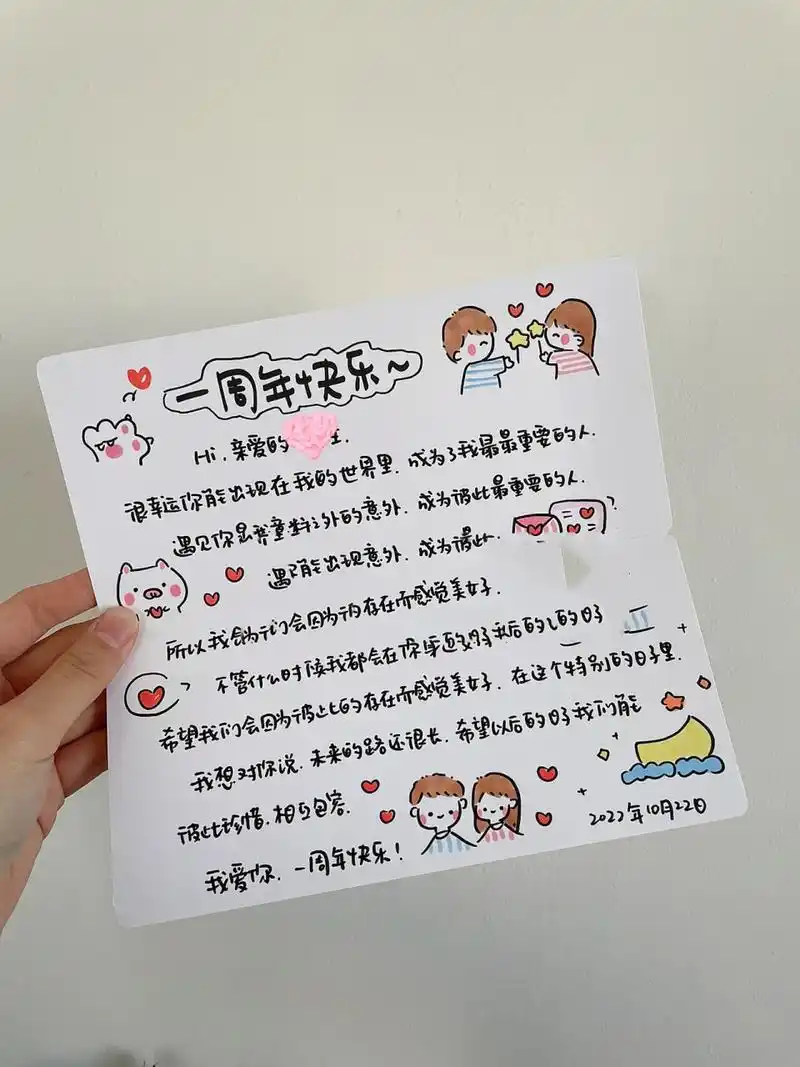 一周年快乐~
Hi,亲爱的
很幸运你能出现在我的世界里.成为了我最最重要的人.
遇见你是意料之外的意外.成为彼此最重要的人.
遇 能出现意外.成为 此
所以我 们会因为 存在而感觉美好.
不管什么时候我都会在你 的 好
希望我们会因为彼此的存在而感觉美好.在这个特别的日子里.
我想对你说.未来的路还很长.希望以后的 我们能
彼此珍惜.相互包容.
我爱你.一周年快乐!
2022年10月22日